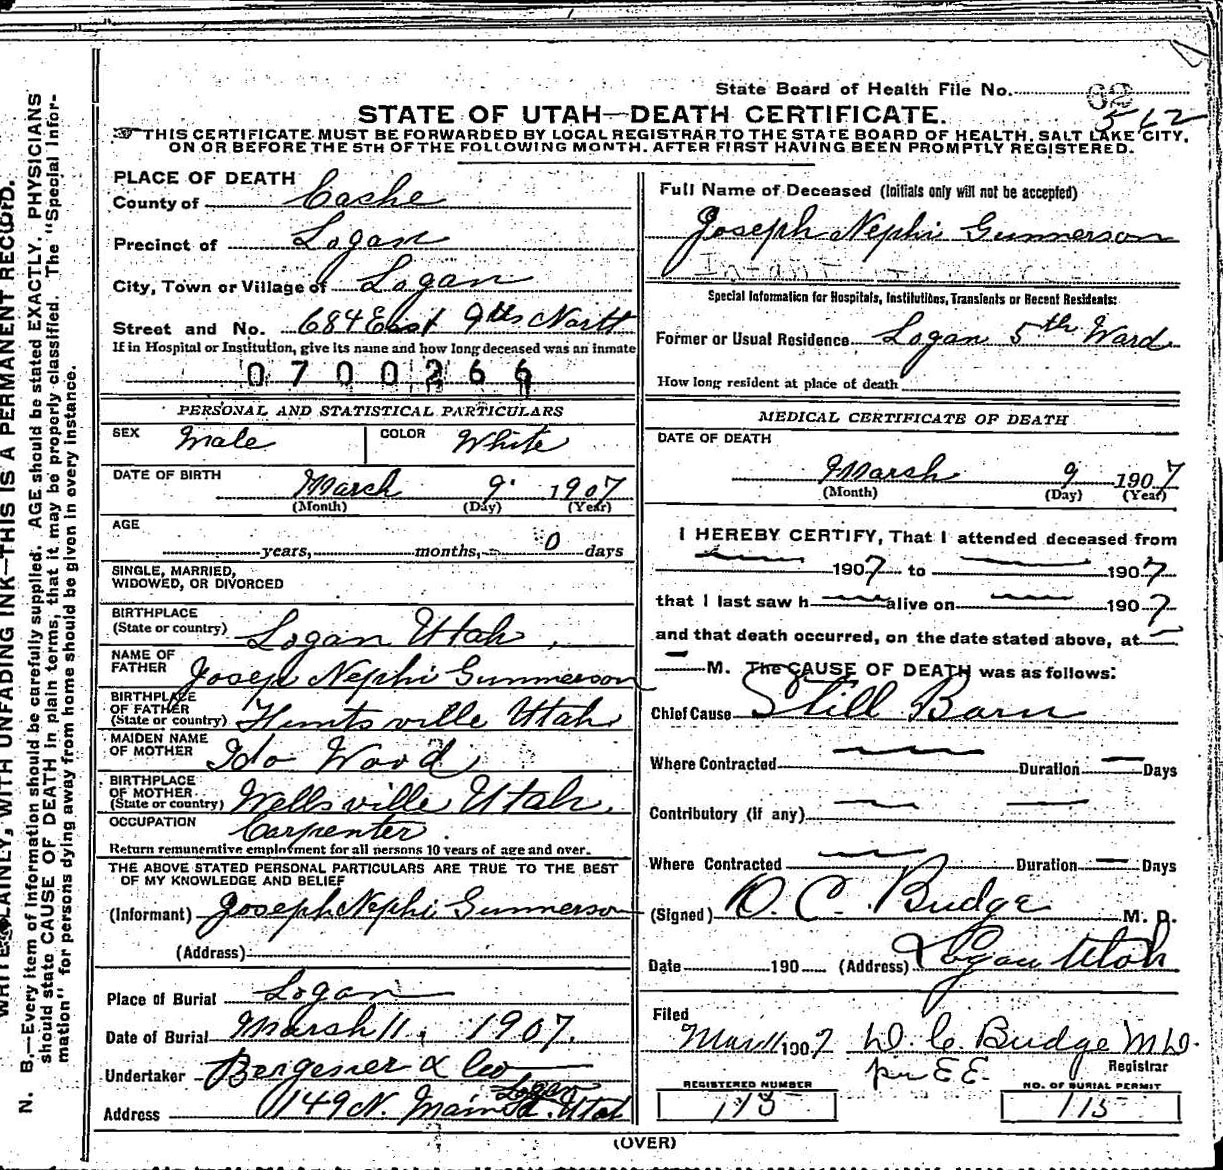 State Board of Health File No. 62
562
STATE OF UTAH—DEATH CERTIFICATE.
THIS CERTIFICATE MUST BE FORWARDED BY LOCAL REGISTRAR TO THE STATE BOARD OF HEALTH, SALT LAKE CITY,
ON OR BEFORE THE 5TH OF THE FOLLOWING MONTH. AFTER FIRST HAVING BEEN PROMPTLY REGISTERED.
WRITE PLAINLY, WITH UNFADING INK—THIS IS A PERMANENT RECORD.
N. B.—Every item of information should be carefully supplied. AGE should be stated EXACTLY. PHYSICIANS
should state CAUSE OF DEATH in plain terms, that it may be properly classified. The "Special Infor-
mation" for persons dying away from home should be given in every instance.
PLACE OF DEATH
County of Cache
Precinct of Logan
City, Town or Village of Logan
Street and No. 684 East 9th North
If in Hospital or Institution, give its name and how long deceased was an inmate
0700266
PERSONAL AND STATISTICAL PARTICULARS
SEX Male COLOR White
DATE OF BIRTH
March 9 1907
(Month) (Day) (Year)
AGE
years, months, 0 days
SINGLE, MARRIED,
WIDOWED, OR DIVORCED
BIRTHPLACE
(State or country) Logan Utah
NAME OF
FATHER Joseph Nephi Gunnerson
BIRTHPLACE
OF FATHER
(State or country) Huntsville Utah
MAIDEN NAME
OF MOTHER Ida Wood
BIRTHPLACE
OF MOTHER
(State or country) Wellsville Utah.
OCCUPATION Carpenter.
Return remunerative employment for all persons 10 years of age and over.
THE ABOVE STATED PERSONAL PARTICULARS ARE TRUE TO THE BEST
OF MY KNOWLEDGE AND BELIEF
(Informant) Joseph Nephi Gunnerson
(Address)
Place of Burial Logan
Date of Burial March 11, 1907.
Undertaker Bergesner & Co
Logan
Address 149 N. Main St. Utah
Full Name of Deceased (Initials only will not be accepted)
Joseph Nephi Gunnerson
Special Information for Hospitals, Institutions, Transients or Recent Residents:
Former or Usual Residence Logan 5th Ward
How long resident at place of death
MEDICAL CERTIFICATE OF DEATH
DATE OF DEATH
March 9 1907
(Month) (Day) (Year)
I HEREBY CERTIFY, That I attended deceased from
— 1907 to — 1907
that I last saw h — alive on — 1907
and that death occurred, on the date stated above, at —
— M. The CAUSE OF DEATH was as follows:
Chief Cause Still Born
Where Contracted — Duration — Days
Contributory (if any) — —
Where Contracted — Duration — Days
(Signed) O. C. Budge M. D.
Date 190 (Address) Logan Utah
Filed
Mar 11 1907 D. C. Budge M.D.
Registrar
per E.E.
REGISTERED NUMBER
NO. OF BURIAL PERMIT
115
(OVER)